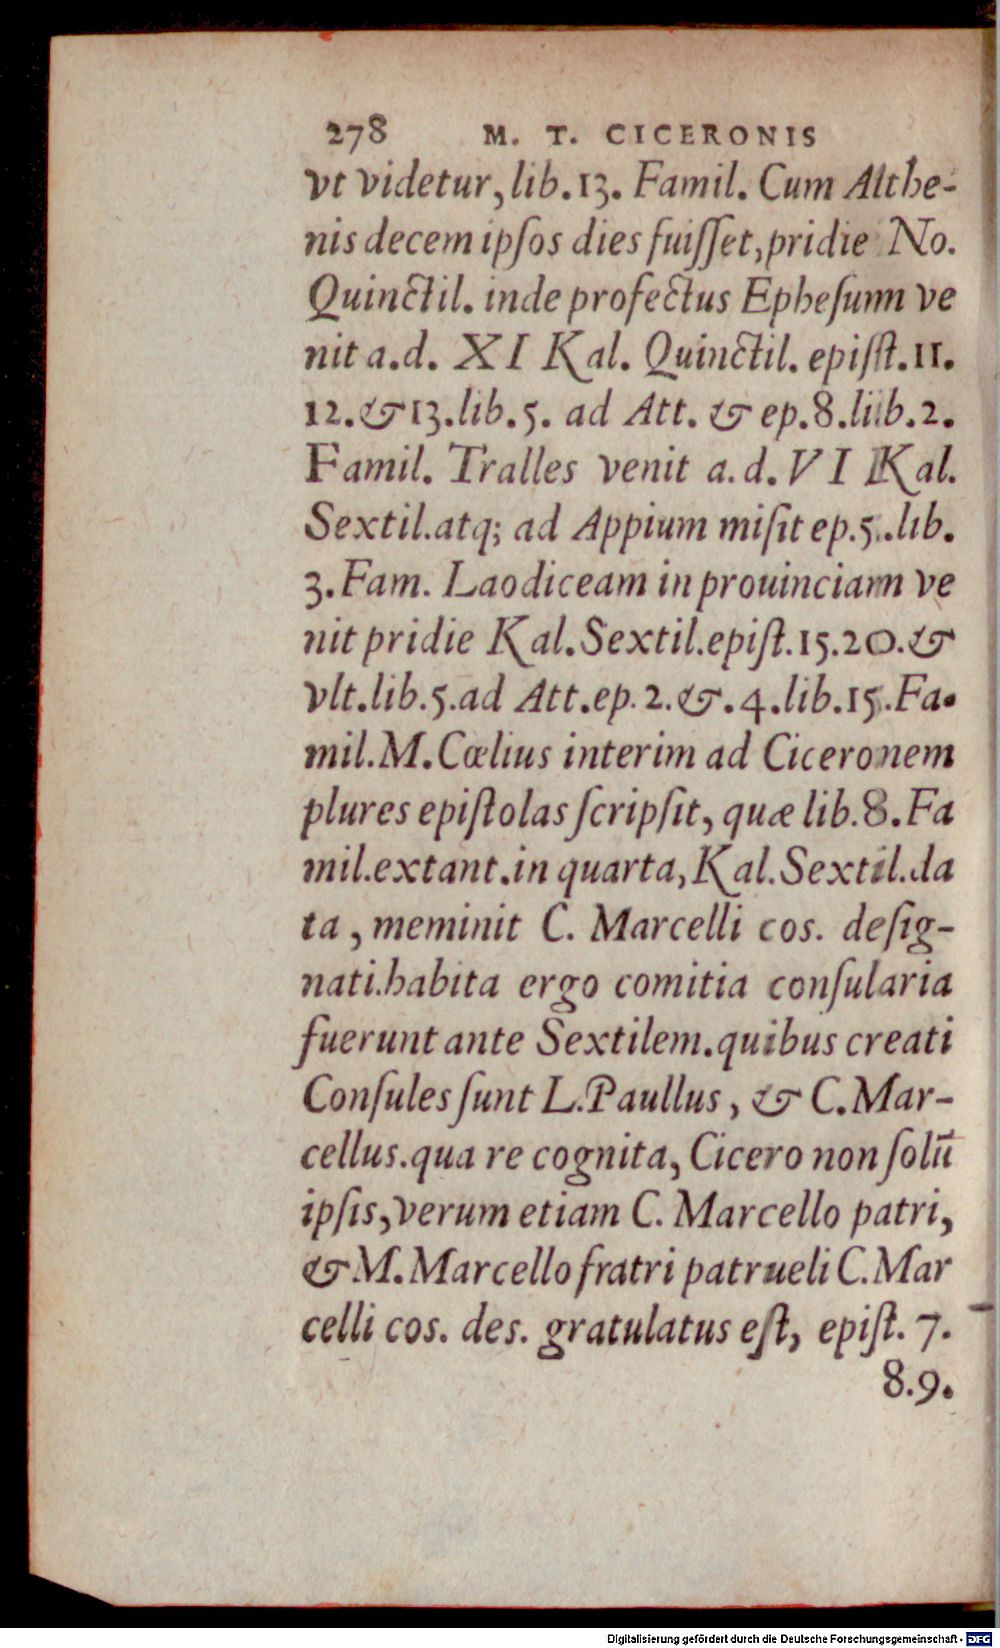 278 M. T. CICERONIS
vt videtur, lib.13. Famil. Cum Athe-
nis decem ipſos dies fuiſſet, pridie No.
Quinctil. inde profectus Epheſum ve
nit a.d. XI Kal. Quinctil. epiſt.11.
12.&13.lib.5. ad Att. & ep.8.lib.2.
Famil. Tralles venit a.d. VI Kal.
Sextil.atq; ad Appium miſit ep.5.lib.
3.Fam. Laodiceam in prouinciam ve
nit pridie Kal.Sextil.epiſt.15.20.&
vlt.lib.5.ad Att.ep.2.&.4.lib.15.Fa.
mil.M.Cœlius interim ad Ciceronem
plures epiſtolas ſcripſit, quæ lib.8.Fa
mil.extant.in quarta, Kal.Sextil.da
ta, meminit C. Marcelli cos. deſig-
nati.habita ergo comitia conſularia
fuerunt ante Sextilem.quibus creati
Conſules ſunt L.Paullus, & C.Mar-
cellus.qua re cognita, Cicero non ſolū
ipſis, verum etiam C. Marcello patri,
& M.Marcello fratri patrueli C.Mar
celli cos. des. gratulatus eſt, epiſt. 7.
8.9.
Digitalisierung gefördert durch die Deutsche Forschungsgemeinschaft - DFG